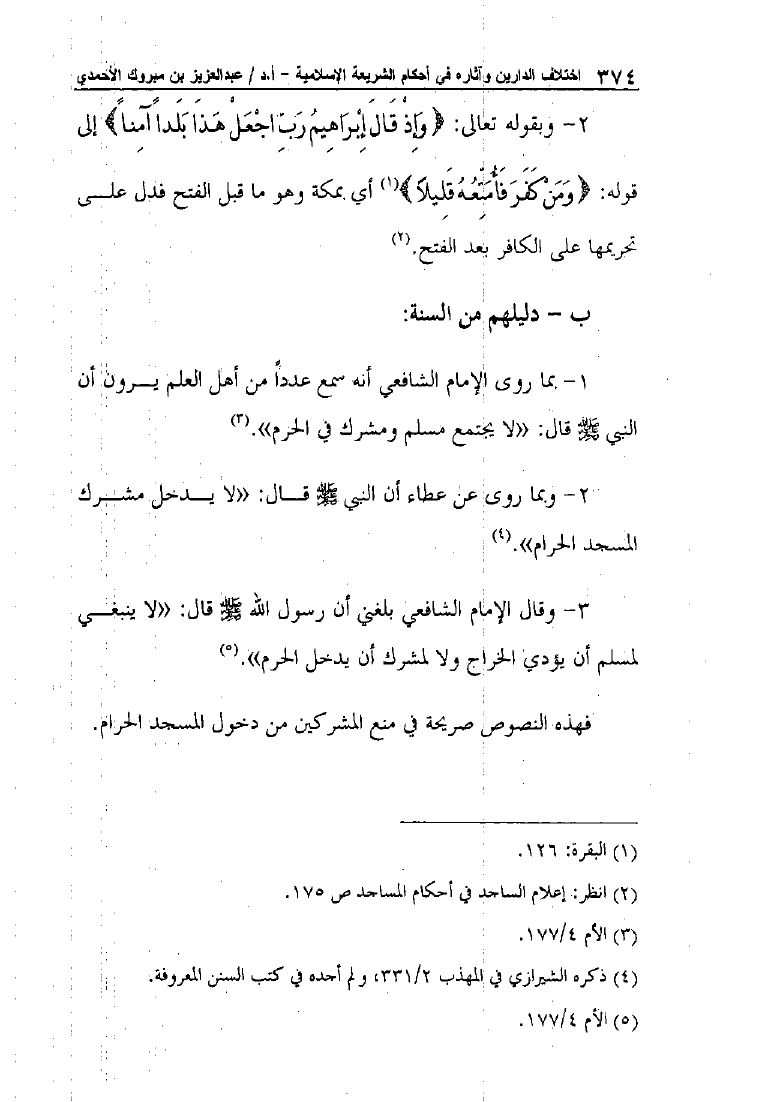 ٣٧٤ اختلاف الدارين وآثاره في أحكام الشريعة الإسلامية - أ.د / عبدالعزيز بن مبروك الأحمدي
٢- وبقوله تعالى: ﴿وَإِذْ قَالَ إِبْرَاهِيمُ رَبِّ اجْعَلْ هَٰذَا بَلَداً آمِناً﴾ إلى
قوله: ﴿وَمَنْ كَفَرَ فَأُمَتِّعُهُ قَلِيلًا﴾(١) أي بمكة وهو ما قبل الفتح فدل علـــى
تحريمها على الكافر بعد الفتح.(٢)
ب – دليلهم من السنة:
١- بما روى الإمام الشافعي أنه سمع عدداً من أهل العلم يـــرون أن
النبي ﷺ قال: «لا يجتمع مسلم ومشرك في الحرم».(٣)
٢- وبما روى عن عطاء أن النبي ﷺ قـــال: «لا يـــدخل مشـــرك
المسجد الحرام».(٤)
٣- وقال الإمام الشافعي بلغني أن رسول الله ﷺ قال: «لا ينبغـــي
لمسلم أن يؤدي الخراج ولا لمشرك أن يدخل الحرم».(٥)
فهذه النصوص صريحة في منع المشركين من دخول المسجد الحرام.
(١) البقرة: ١٢٦.
(٢) انظر: إعلام الساجد في أحكام المساجد ص ١٧٥.
(٣) الأم ١٧٧/٤.
(٤) ذكره الشيرازي في المهذب ٣٣١/٢، ولم أجده في كتب السنن المعروفة.
(٥) الأم ١٧٧/٤.